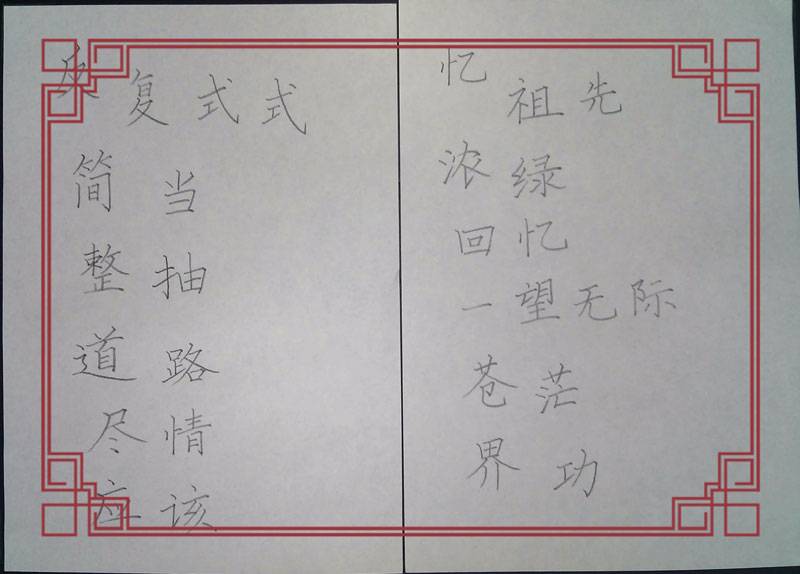 灰复式式
简当
整抽
道路
尽情
应该
忆
祖先
浓绿
回忆
一望无际
苍茫
界功